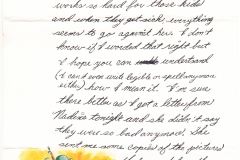 works so hard for those kids
and when they get sick everything
seems to go against her. I don't
know if I worded that right but
I hope you can understand
(I can't even write legible or spell anymore
either) how I mean it. I'm sure
there better as I got a letter from
Nadine tonight and she didn't say
they were so bad anymore. She
sent me some copies of the pictures